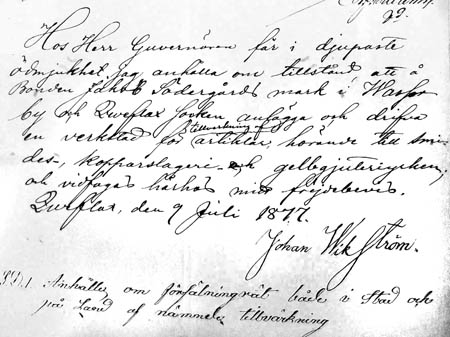 Hos Herr Guvernören får i djupaste
ödmjukhet jag anhålla om tillstånd att å
Bonden Jakob Södergårds mark i Wassor
by och Qweflax socken anlägga och drifva
en verkstad för tillverkning af artiklar, hörande till smi-
des-, kopparslageri- och gelbgjuteriyrken,
och vidfogas härhos mitt frejdebevis.
Qweflax, den 9 Juli 1877.
Johan Wikström.
Anhålles om försälningrät både i Stad och
på Land af nämnde tillvärkning